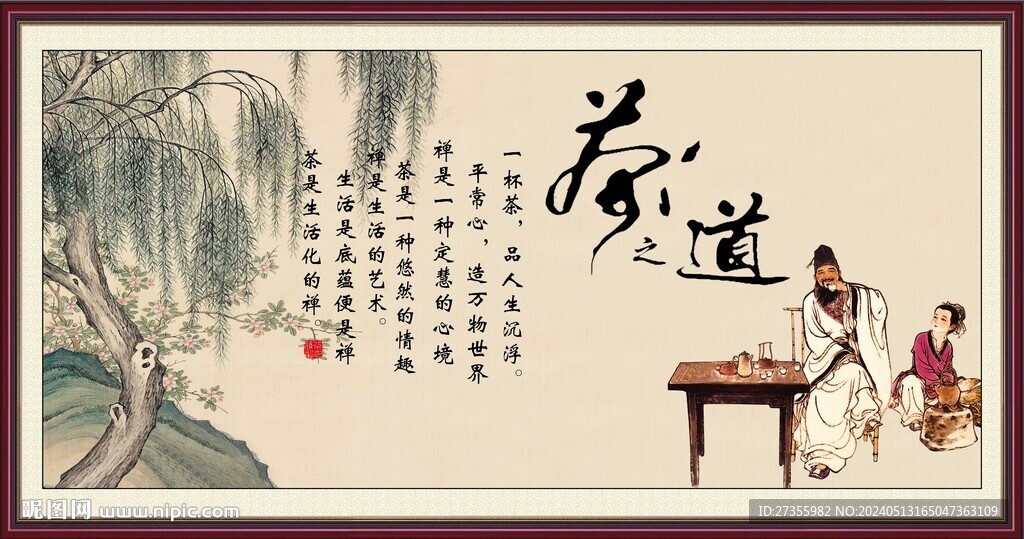 茶之道
一杯茶，品人生沉浮。
平常心，造万物世界
禅是一种定慧的心境
茶是一种悠然的情趣
禅是生活的艺术。
生活是底蕴便是禅
茶是生活化的禅。
昵图网 www.nipic.com
ID:27355982 NO:20240513165047363109